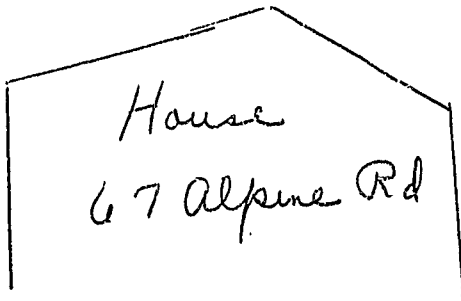 House
67 Alpine Rd